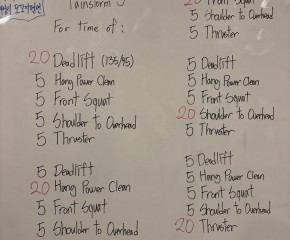 For time of:
20 Deadlift (135/95)
5 Hang Power Clean
5 Front Squat
5 Shoulder to Overhead
5 Thruster
5 Deadlift
20 Hang Power Clean
5 Front Squat
5 Shoulder to Overhead
20 Front Squat
5 Shoulder to Overhead
5 Thruster
5 Deadlift
5 Hang Power Clean
5 Front Squat
20 Shoulder to Overhead
5 Thruster
5 Deadlift
5 Hang Power Clean
5 Front Squat
5 Shoulder to Overhead
20 Thruster